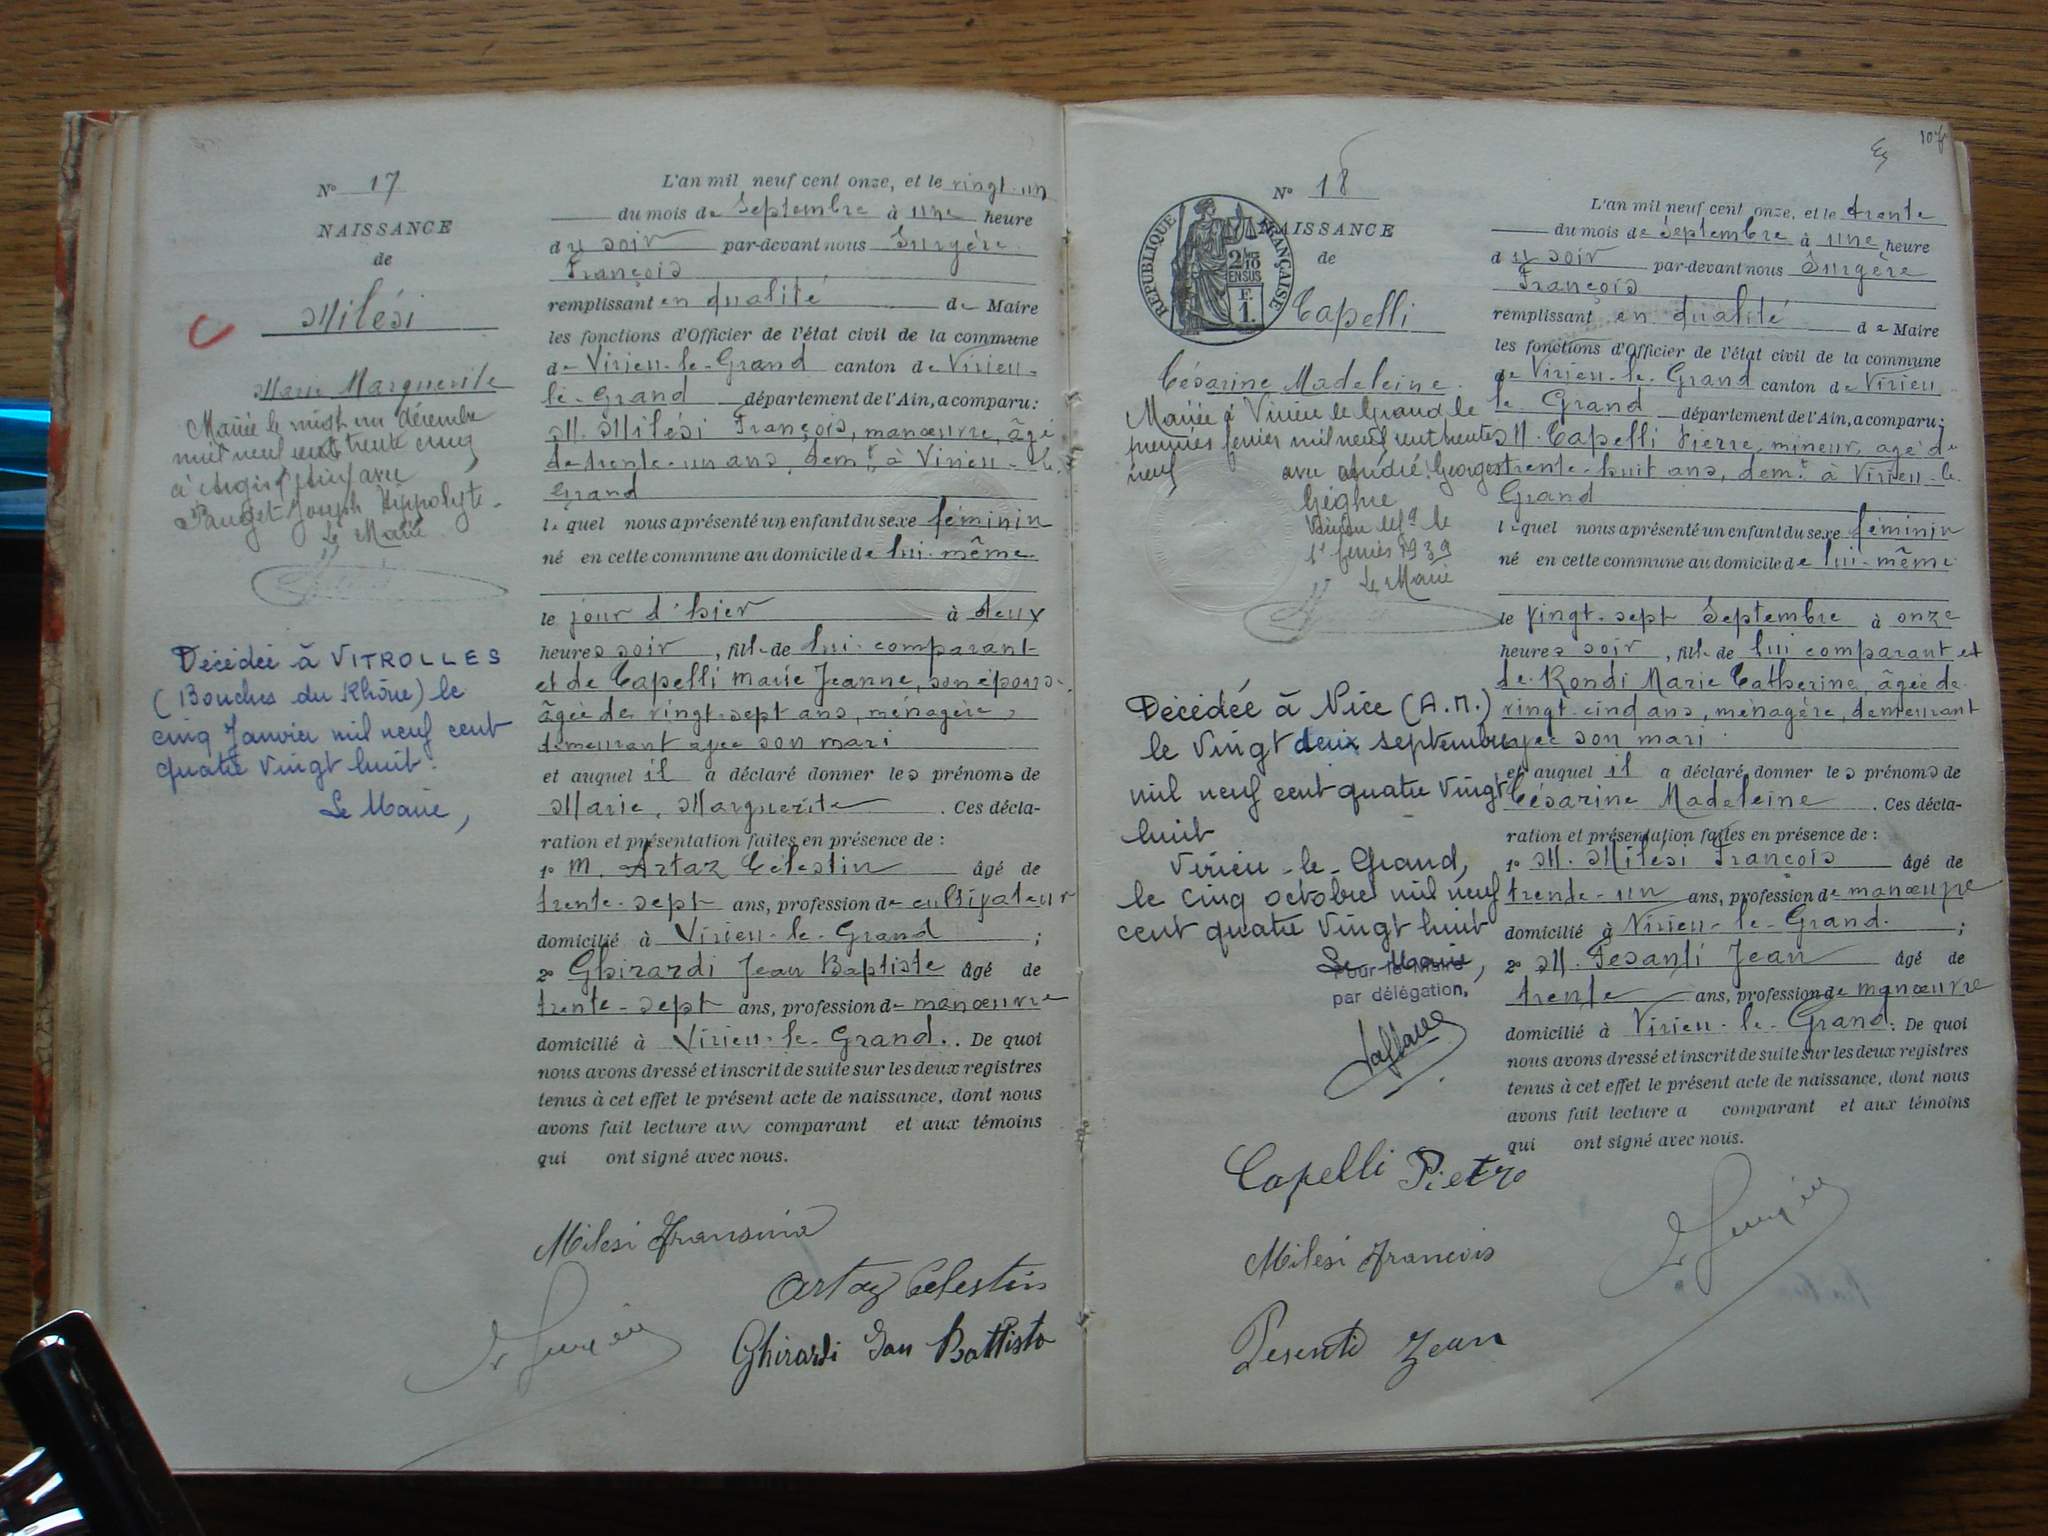 N° 17
NAISSANCE
de
Milési
Marie Marguerite
Mariée le vingt un décembre
mil neuf cent trente cinq
à avec
Pauget Joseph Hippolyte.
Le Maire
Décédée à VITROLLES
(Bouches du Rhône) le
cinq Janvier mil neuf cent
quatre vingt huit.
Le Maire,
L'an mil neuf cent onze, et le vingt-un
du mois de Septembre à une heure
du soir par-devant nous Surgère
François
remplissant en qualité de Maire
les fonctions d'Officier de l'état civil de la commune
de Virieu-le-Grand canton de Virieu-
le-Grand département de l'Ain, a comparu:
M. Milési François, manœuvre, âgé
de trente-un ans, demt à Virieu-le-
Grand
lequel nous a présenté un enfant du sexe féminin
né en cette commune au domicile de lui-même
le jour d'hier à deux
heures soir, fille de lui comparant
et de Capelli Marie Jeanne, son épouse,
âgée de vingt-sept ans, ménagère,
demeurant avec son mari
et auquel il a déclaré donner les prénoms de
Marie, Marguerite. Ces décla-
ration et présentation faites en présence de:
1° M. Artaz Célestin âgé de
trente-sept ans, profession de cultivateur
domicilié à Virieu-le-Grand;
2° Ghirardi Jean Baptiste âgé de
trente-sept ans, profession de manœuvre
domicilié à Virieu-le-Grand.. De quoi
nous avons dressé et inscrit de suite sur les deux registres
tenus à cet effet le présent acte de naissance, dont nous
avons fait lecture au comparant et aux témoins
qui ont signé avec nous.
Milesi
Artaz Celestin
Ghirardi Battista
107
N° 18
NAISSANCE
de
RÉPUBLIQUE FRANÇAISE
2/10
EN SUS
F.
1.
Capelli
Césarine Madeleine.
Mariée à Virieu le Grand le
premier fevrier mil neuf cent trente
neuf avec André Georges
Virieu le Gd le
1er fevrier 1939
Le Maire
Décédée à Nice (A.M.)
le vingt deux septembre
mil neuf cent quatre vingt
huit
Virieu-le-Grand,
le cinq octobre mil neuf
cent quatre vingt huit
Le Maire,
Pour le Maire
par délégation,
L'an mil neuf cent onze, et le trente
du mois de Septembre à une heure
du soir par-devant nous Surgère
François
remplissant en qualité de Maire
les fonctions d'Officier de l'état civil de la commune
de Virieu-le-Grand canton de Virieu
le Grand département de l'Ain, a comparu:
M. Capelli Pierre, mineur, âgé de
trente-huit ans, demt à Virieu-le-
Grand
lequel nous a présenté un enfant du sexe féminin
né en cette commune au domicile de lui-même
le vingt-sept Septembre à onze
heures soir, fille de lui comparant et
de Rondi Marie Catherine, âgée de
vingt-cinq ans, ménagère, demeurant
avec son mari
et auquel il a déclaré donner les prénoms de
Césarine Madeleine. Ces décla-
ration et présentation faites en présence de:
1° M. Milési François âgé de
trente-un ans, profession de manœuvre
domicilié à Virieu-le-Grand.;
2° M. Pesanti Jean âgé de
trente ans, profession de manœuvre
domicilié à Virieu-le-Grand. De quoi
nous avons dressé et inscrit de suite sur les deux registres
tenus à cet effet le présent acte de naissance, dont nous
avons fait lecture a comparant et aux témoins
qui ont signé avec nous.
Capelli Pietro
Milesi Francois
Pesenti Jean